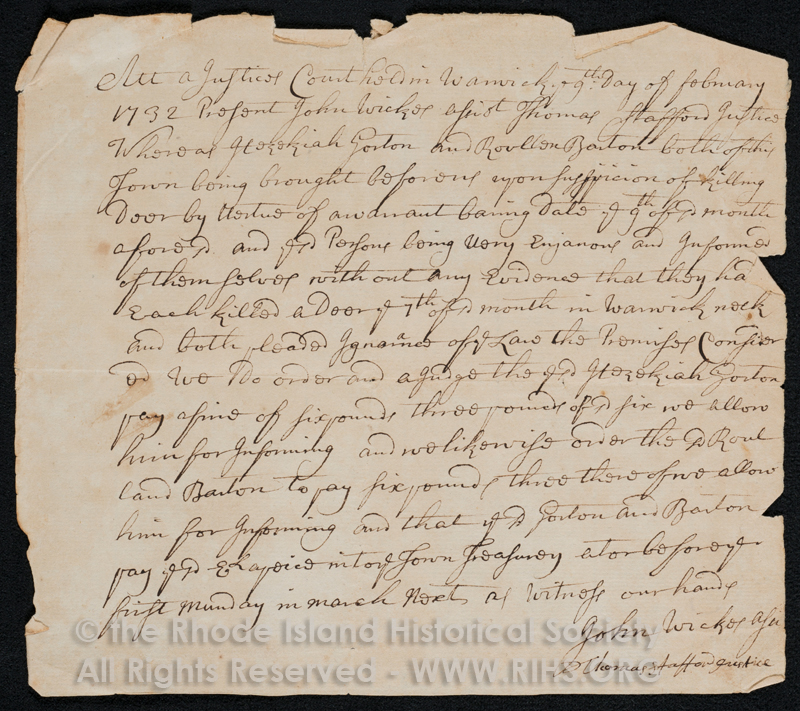 Att a Justices Court held in Warwick ye 9th Day of february
1732 Present John Wickes asist Thomas Stafford Justice
Whereas Hezekiah Gorton and Roullen Barton both of this
Town being brought before us upon suspicion of killing
Deer by Vertue of a warant baring Date ye 9th of sd month
afore sd and ye sd Persons being Very Enjanous and Informed
of themselves without any Evidence that they ha
Each killed a Deer ye 7th of sd month in Warwick neck
and both pleaded Ignarance of ye Law the Premises Consider
ed We Do order and a Judge the ye sd Hezekiah Gorton
pay a fine of six pounds three pounds of sd six we allow
him for Informing and we likewise order the sd Roul
land Barton to pay six pounds three there of we allow
him for Informing and that ye sd Gorton and Barton
pay ye sd 3£ apeice into ye Town Treasurey at or before ye
first Munday in march Next as Witness our hands
John Wickes Asu
Thomas Stafford Justice
©the Rhode Island Historical Society
All Rights Reserved - WWW.RIHS.ORG